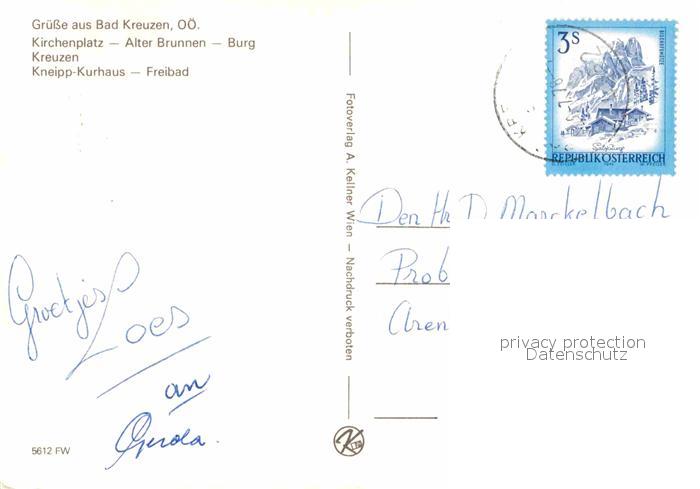 Grüße aus Bad Kreuzen, OÖ.
Kirchenplatz — Alter Brunnen — Burg
Kreuzen
Kneipp-Kurhaus — Freibad
3 S
BISCHOFSMÜTZE
Salzburg
REPUBLIK ÖSTERREICH
Fotoverlag A. Kellner Wien — Nachdruck verboten
Den Hr D Marckelbach
Prob
Aren
privacy protection
Datenschutz
Groetjes
Loes
an
Gerda.
5612 FW